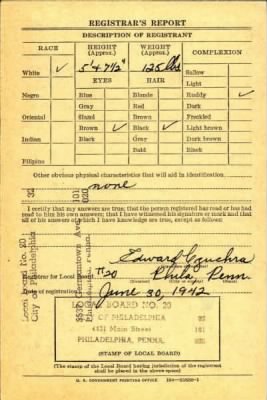 REGISTRAR'S REPORT
DESCRIPTION OF REGISTRANT
RACE HEIGHT (Approx.) WEIGHT (Approx.) COMPLEXION
White ✓ 5'4 7½" 125 lbs. Sallow
EYES HAIR Light
Negro Blue Blonde Ruddy ✓
Gray Red Dark
Oriental Hazel Brown Freckled
Brown ✓ Black ✓ Light brown
Indian Black Gray Dark brown
Bald Black
Filipino
Other obvious physical characteristics that will aid in identification
none
I certify that my answers are true; that the person registered has read or has had
read to him his own answers; that I have witnessed his signature or mark and that
all of his answers of which I have knowledge are true, except as follows:
Local Board No. 20
City of Philadelphia
32
101
020
Germantown Ave
Edward
Registrar for Local Board #20 Phila. Penn.
Date of registration June 30, 1942
LOCAL BOARD NO. 20
OF PHILADELPHIA 32
4431 Main Street 101
PHILADELPHIA, PENNA.
(STAMP OF LOCAL BOARD)
(The stamp of the Local Board having jurisdiction of the registrant
shall be placed in the above space.)
U. S. GOVERNMENT PRINTING OFFICE